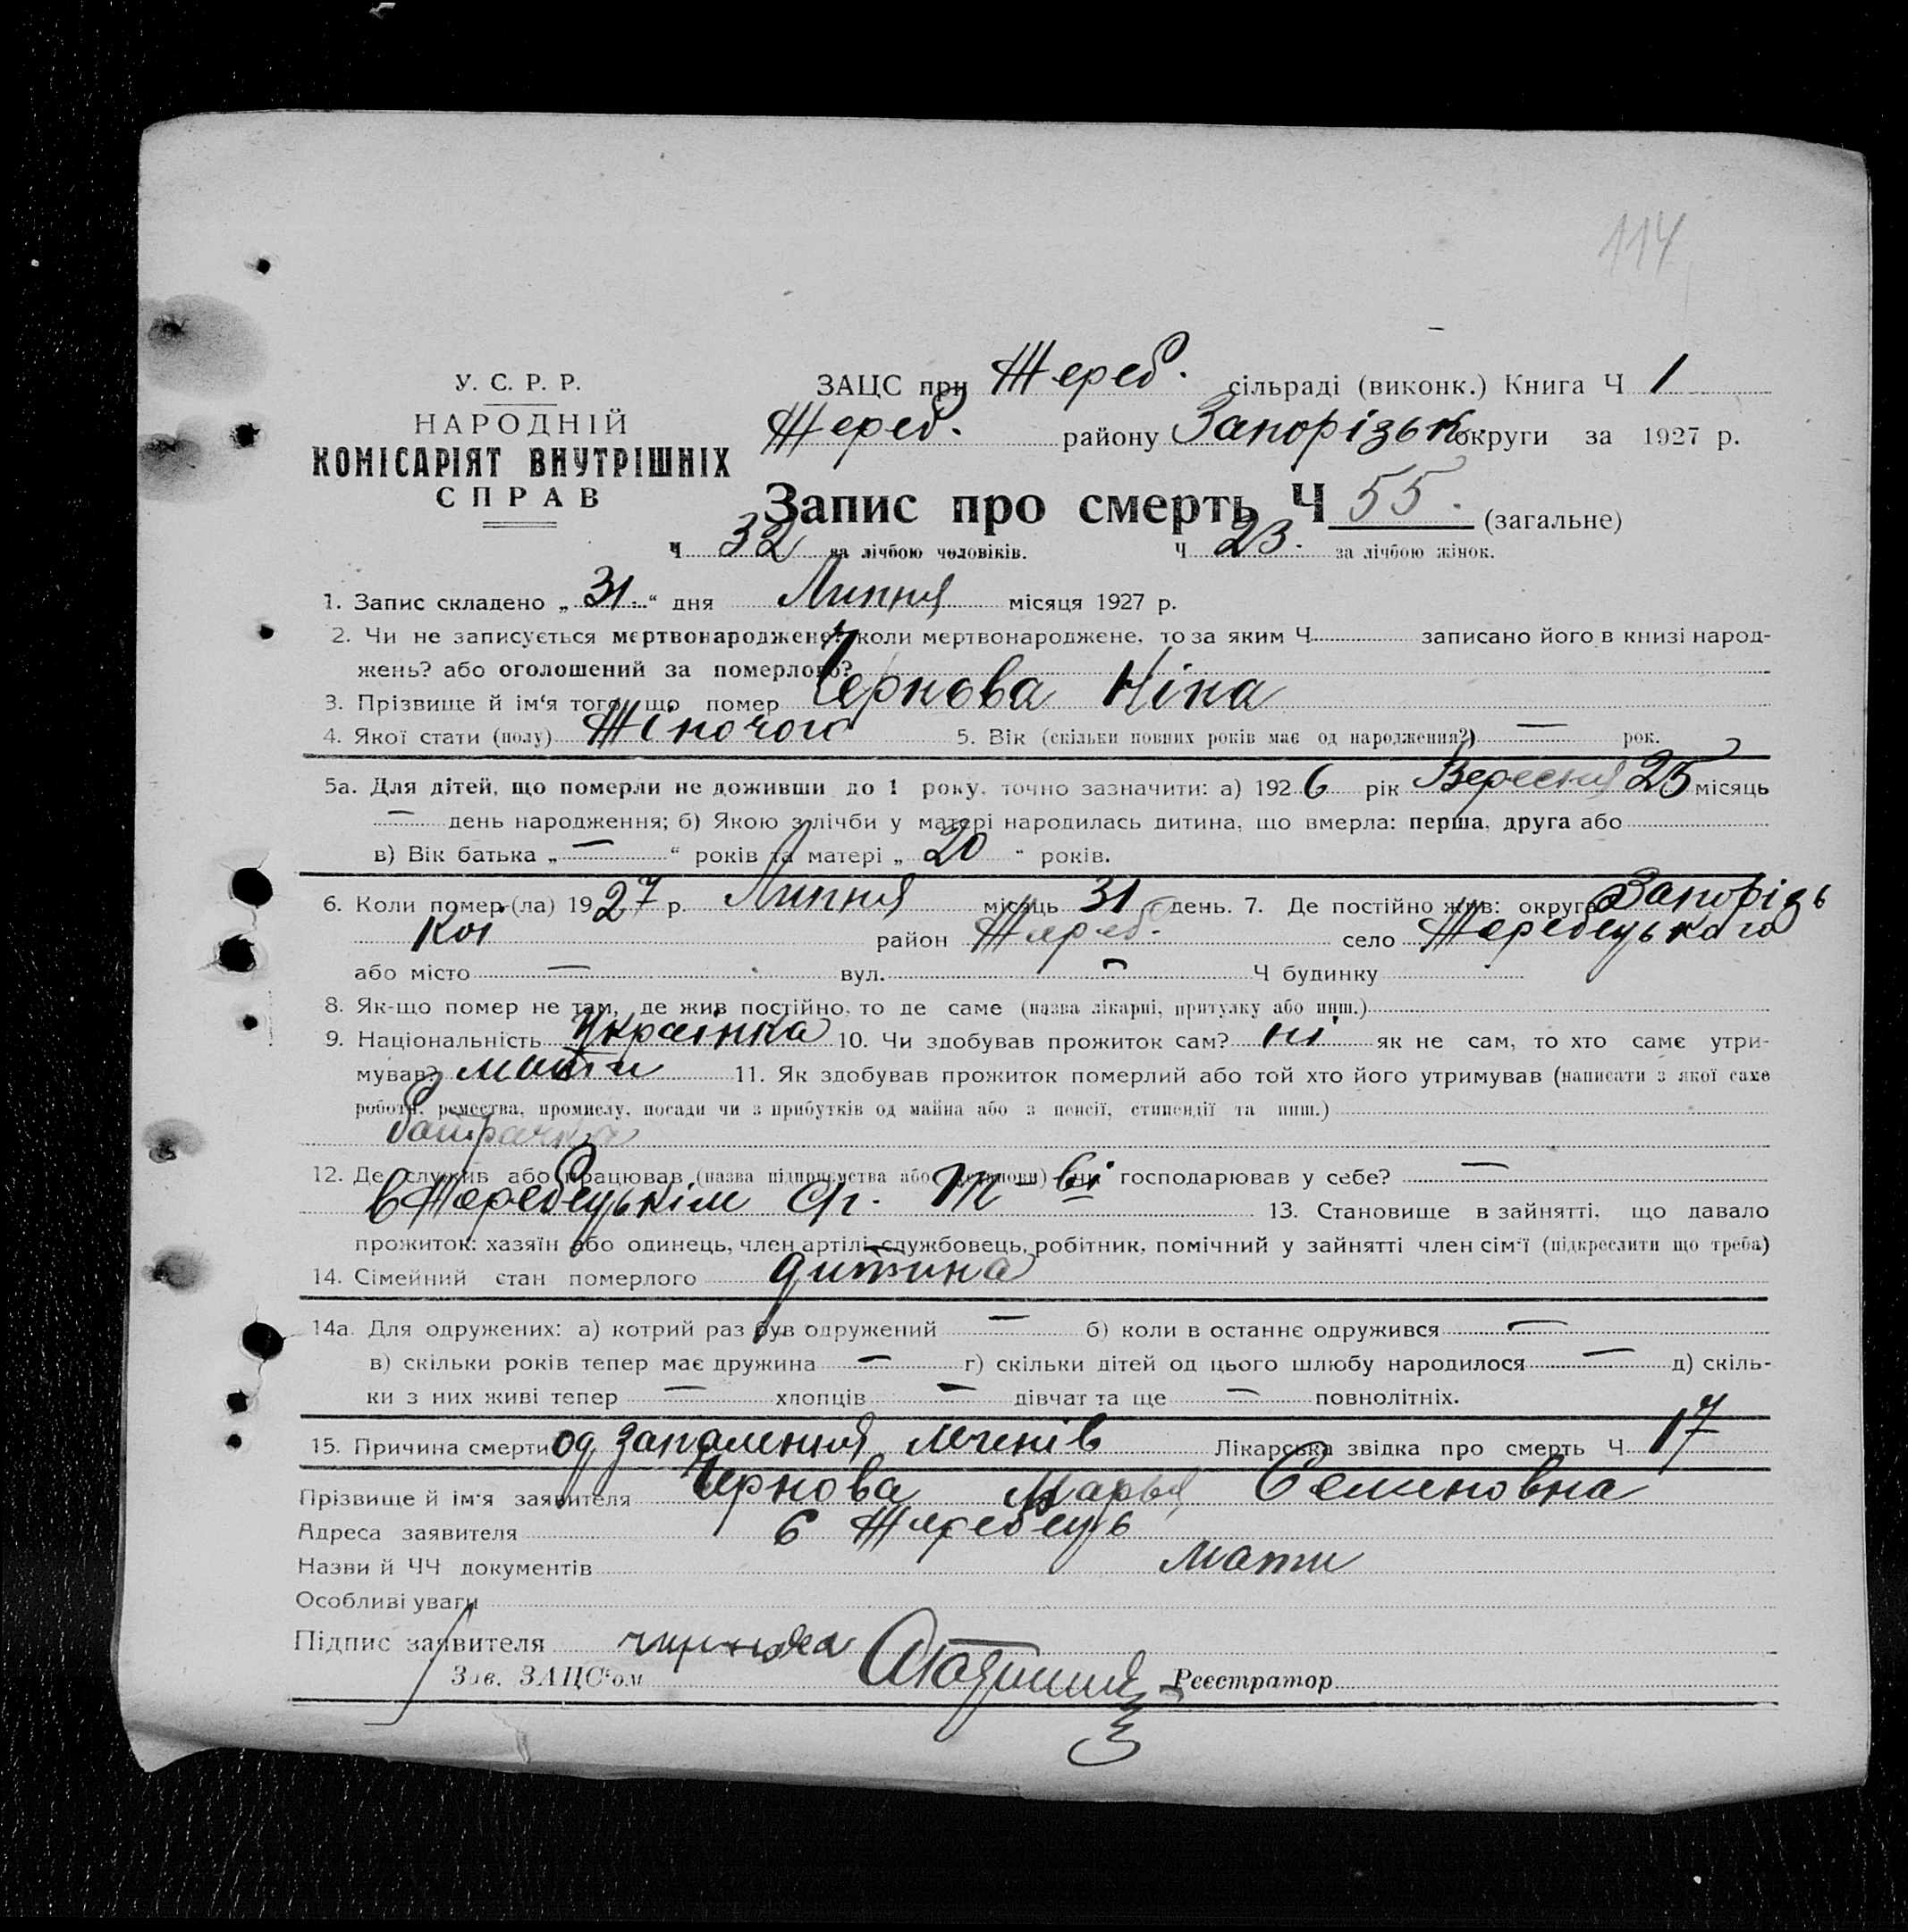 114
У. С. Р. Р.
НАРОДНІЙ
КОМІСАРІЯТ ВНУТРІШНІХ
СПРАВ
ЗАЦС при Жереб. сільраді (виконк.) Книга Ч 1
Жереб. району Запорізьк округи за 1927 р.
Запис про смерть Ч 55. (загальне)
Ч 32 за лічбою чоловіків. Ч 23. за лічбою жінок.
1. Запис складено „ 31 “ дня Липня місяця 1927 р.
2. Чи не записується мертвонароджене? коли мертвонароджене, то за яким Ч записано його в книзі народ-
жень? або оголошений за померлого?
3. Прізвище й ім‘я того, що помер Чернова Ніна
4. Якої стати (полу) Жіночого 5. Вік (скільки повних років має од народження?) — рок.
5а. Для дітей, що померли не доживши до 1 року, точно зазначити: а) 1926 рік Вересня 25 місяць
— день народження; б) Якою з лічби у матері народилась дитина, що вмерла: перша, друга або
в) Вік батька „ — “ років та матері „ 20 “ років.
6. Коли помер (ла) 1927 р. Липня місяць 31 день. 7. Де постійно жив: округа Запорізь
кої район Жереб. село Жеребецького
або місто — вул. — Ч будинку
8. Як-що помер не там, де жив постійно, то де саме (назва лікарні, притулку або инш.)
9. Національність Українка 10. Чи здобував прожиток сам? ні як не сам, то хто саме утри-
мував? мати 11. Як здобував прожиток померлий або той хто його утримував (написати з якої саме
роботи, ремества, промислу, посади чи з прибутків од майна або з пенсії, стипендії та инш.)
батрачка
12. Де служив або працював (назва підприємства або установи) чи господарював у себе? —
в Жеребецькім сп. т-ві 13. Становище в зайнятті, що давало
прожиток: хазяїн або одинець, член артілі, службовець, робітник, помічний у зайнятті член сім‘ї (підкреслити що треба)
14. Сімейний стан померлого дитина
14а. Для одружених: а) котрий раз був одружений — б) коли в останнє одружився —
в) скільки років тепер має дружина — г) скільки дітей од цього шлюбу народилося — д) скіль-
ки з них живі тепер — хлопців — дівчат та ще — повнолітніх.
15. Причина смерти од запалення легенів Лікарська звідка про смерть Ч 17
Прізвище й ім‘я заявителя Чернова Марья Семеновна
Адреса заявителя с Жеребець
Назви й ЧЧ документів мати
Особливі уваги
Підпис заявителя чернова
Зав. ЗАЦС‘ом Реєстратор